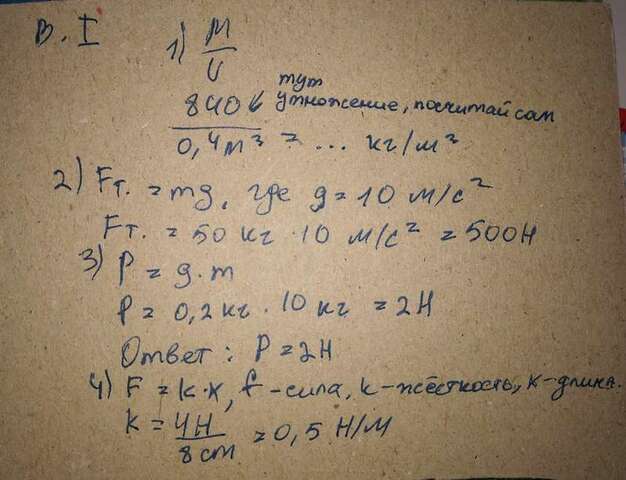 В. I
1) M
V
840 ← тут
умножение, посчитай сам
0,4м³ = ... кг/м³
2) Fт. = mg, где g = 10 м/с²
Fт. = 50 кг · 10 м/с² = 500Н
3) P = g · m
P = 0,2кг · 10 кг = 2Н
Ответ: P = 2Н
4) F = k·x, f - сила, k - жёсткость, x - длина.
K = 4Н
8 см = 0,5 Н/м